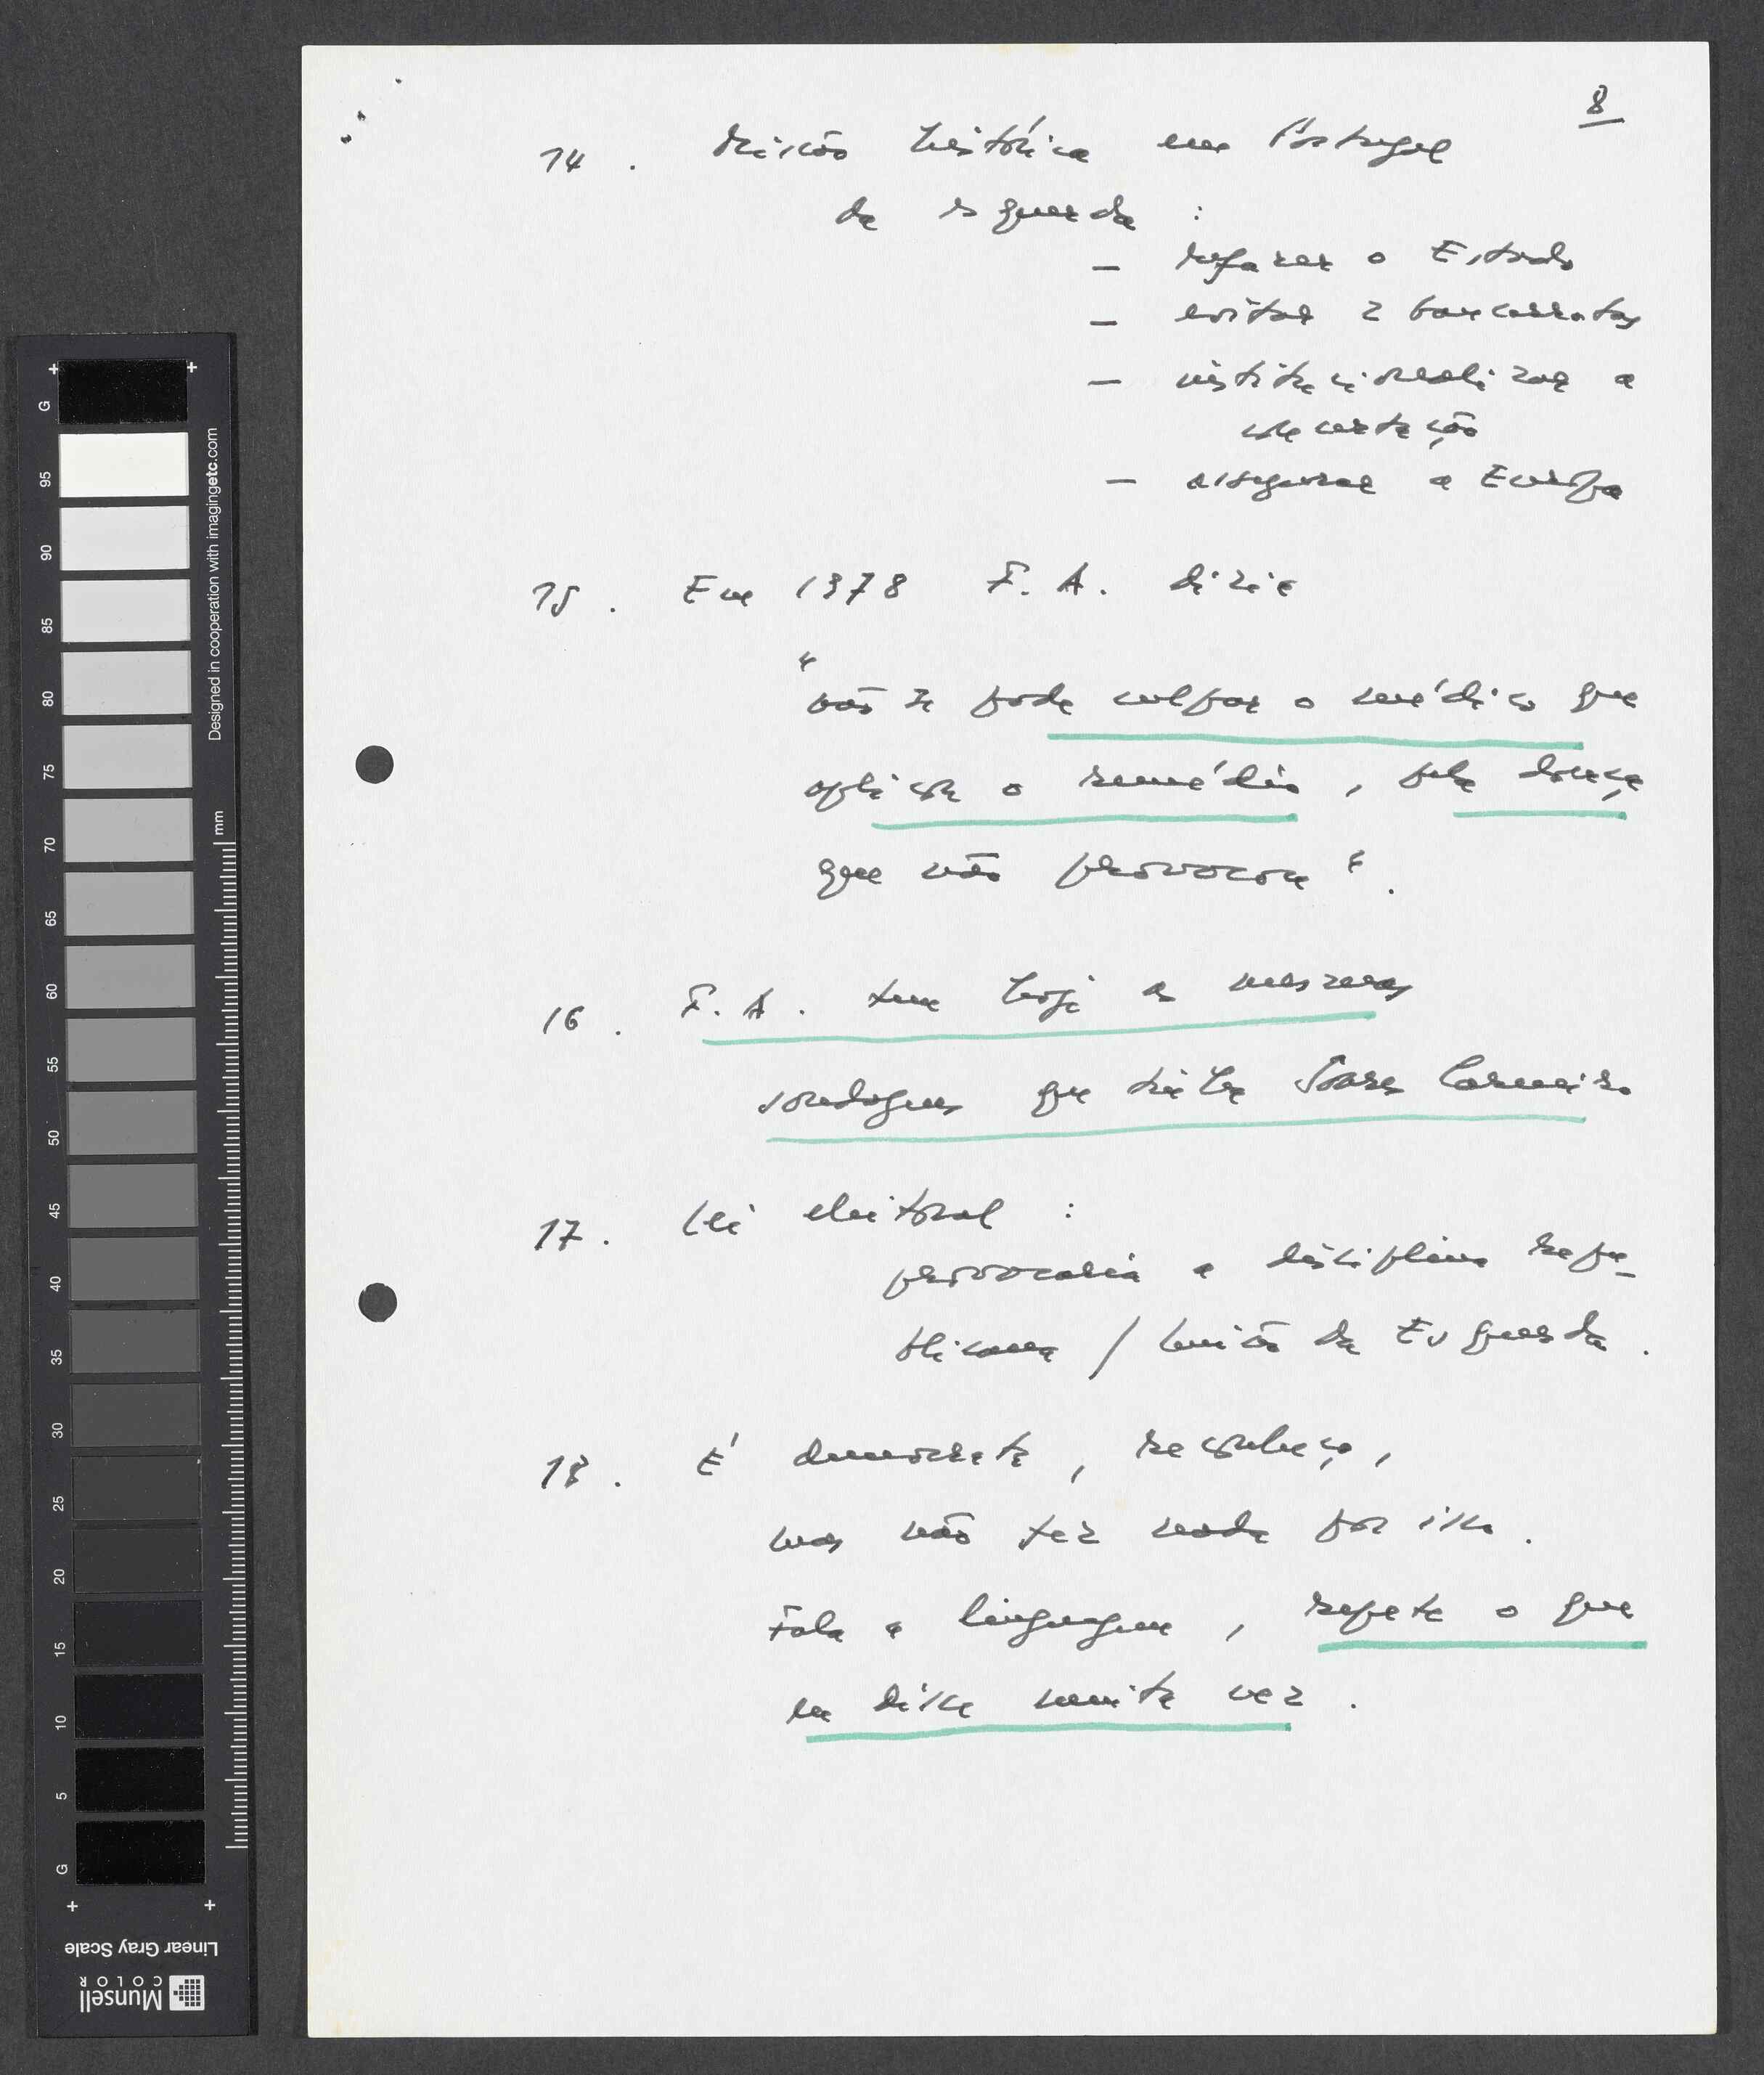 8
14. Missão histórica em Portugal
da esquerda :
— refazer o Estado
— evitar 2 bancarrotas
— institucionalizar a
concertação
— assegurar a Europa
15. Em 1978 F. A. dizia
"não se pode culpar o médico que
aplica o remédio, pela doença
que não provocou".
16. F. A. tem hoje as mesmas
sondagens que tinha Soares Carneiro
17. Lei eleitoral :
provocaria a disciplina repu-
blicana / União da Esquerda.
18. É democrata, reconheço,
mas não fez nada por isso.
Fala a linguagem, repete o que
eu disse muita vez.
G
95
90
85
80
75
70
65
60
55
50
45
40
35
30
25
20
15
10
5
G
mm
Designed in cooperation with imagingetc.com
Linear Gray Scale
Munsell
COLOR